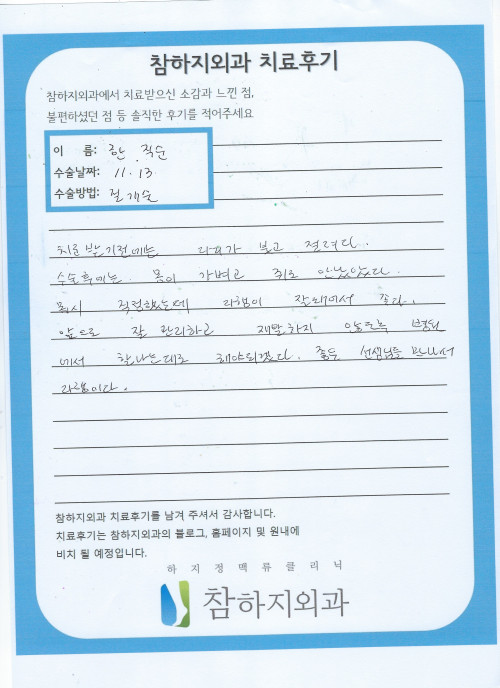 참하지외과 치료후기
참하지외과에서 치료받으신 소감과 느낀 점,
불편하셨던 점 등 솔직한 후기를 적어주세요
이 름: 직순
수술날짜: 11. 13
수술방법: 절개술
치료 받기전에는 다리가 붓고 저렸다.
수술후에는 몸이 가볍고 쥐도 안났았다.
혹시 걱정했는데 다행이 잘돼어서 좋다.
앞으로 잘 관리하고 재발하지 않도록 병원
에서 하라는데로 해야되겠다. 좋은 선생님을 만나서
다행이다.
참하지외과 치료후기를 남겨 주셔서 감사합니다.
치료후기는 참하지외과의 블로그, 홈페이지 및 원내에
비치 될 예정입니다.
하지정맥류클리닉
참하지외과